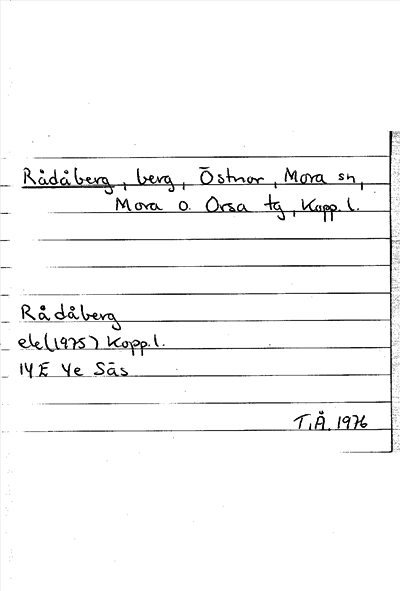 Rådåberg, berg, Östnor, Mora sn,
Mora o. Orsa tg, Kopp. l.
Rådåberg
ek(1975) Kopp. l.
14E 4e Säs
T.Å. 1976